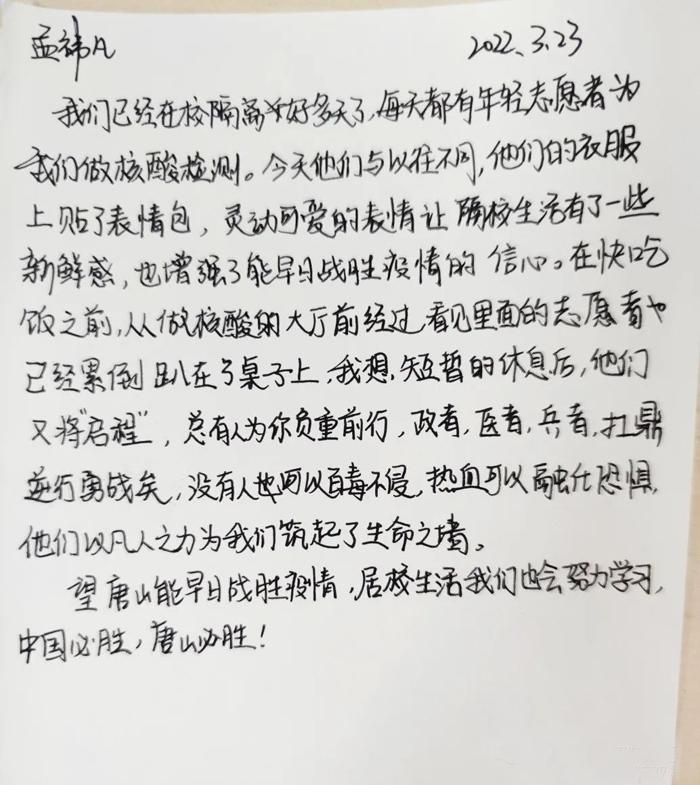 孟祎凡 2022.3.23
我们已经在校隔离好多天了,每天都有年轻志愿者为
我们做核酸检测。今天他们与以往不同,他们的衣服
上贴了表情包,灵动可爱的表情让隔校生活有了一些
新鲜感,也增强了能早日战胜疫情的信心。在快吃
饭之前,从做核酸的大厅前经过看见里面的志愿者也
已经累倒趴在了桌子上,我想,短暂的休息后,他们
又将“启程”,总有人为你负重前行,政者,医者,兵者,扛鼎
逆行勇战矣,没有人也可以百毒不侵,热血可以融化恐惧,
他们以凡人之力为我们筑起了生命之墙。
望唐山能早日战胜疫情,居校生活我们也会努力学习,
中国必胜,唐山必胜!